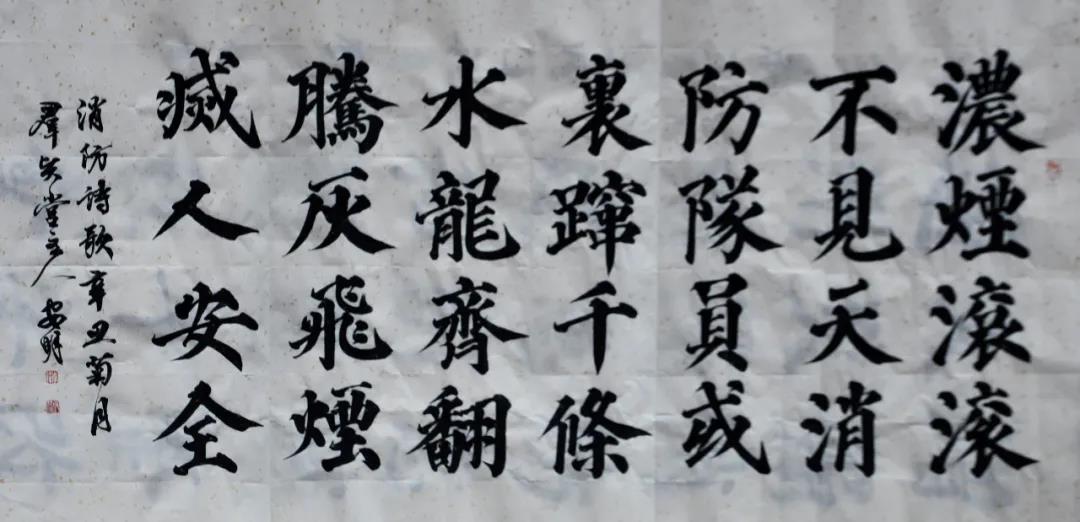 濃煙滾滚
不見天消
防隊員或
裏蹿千條
水龍齊翻
騰灰飛煙
滅人安全
消防詩歌辛丑菊月